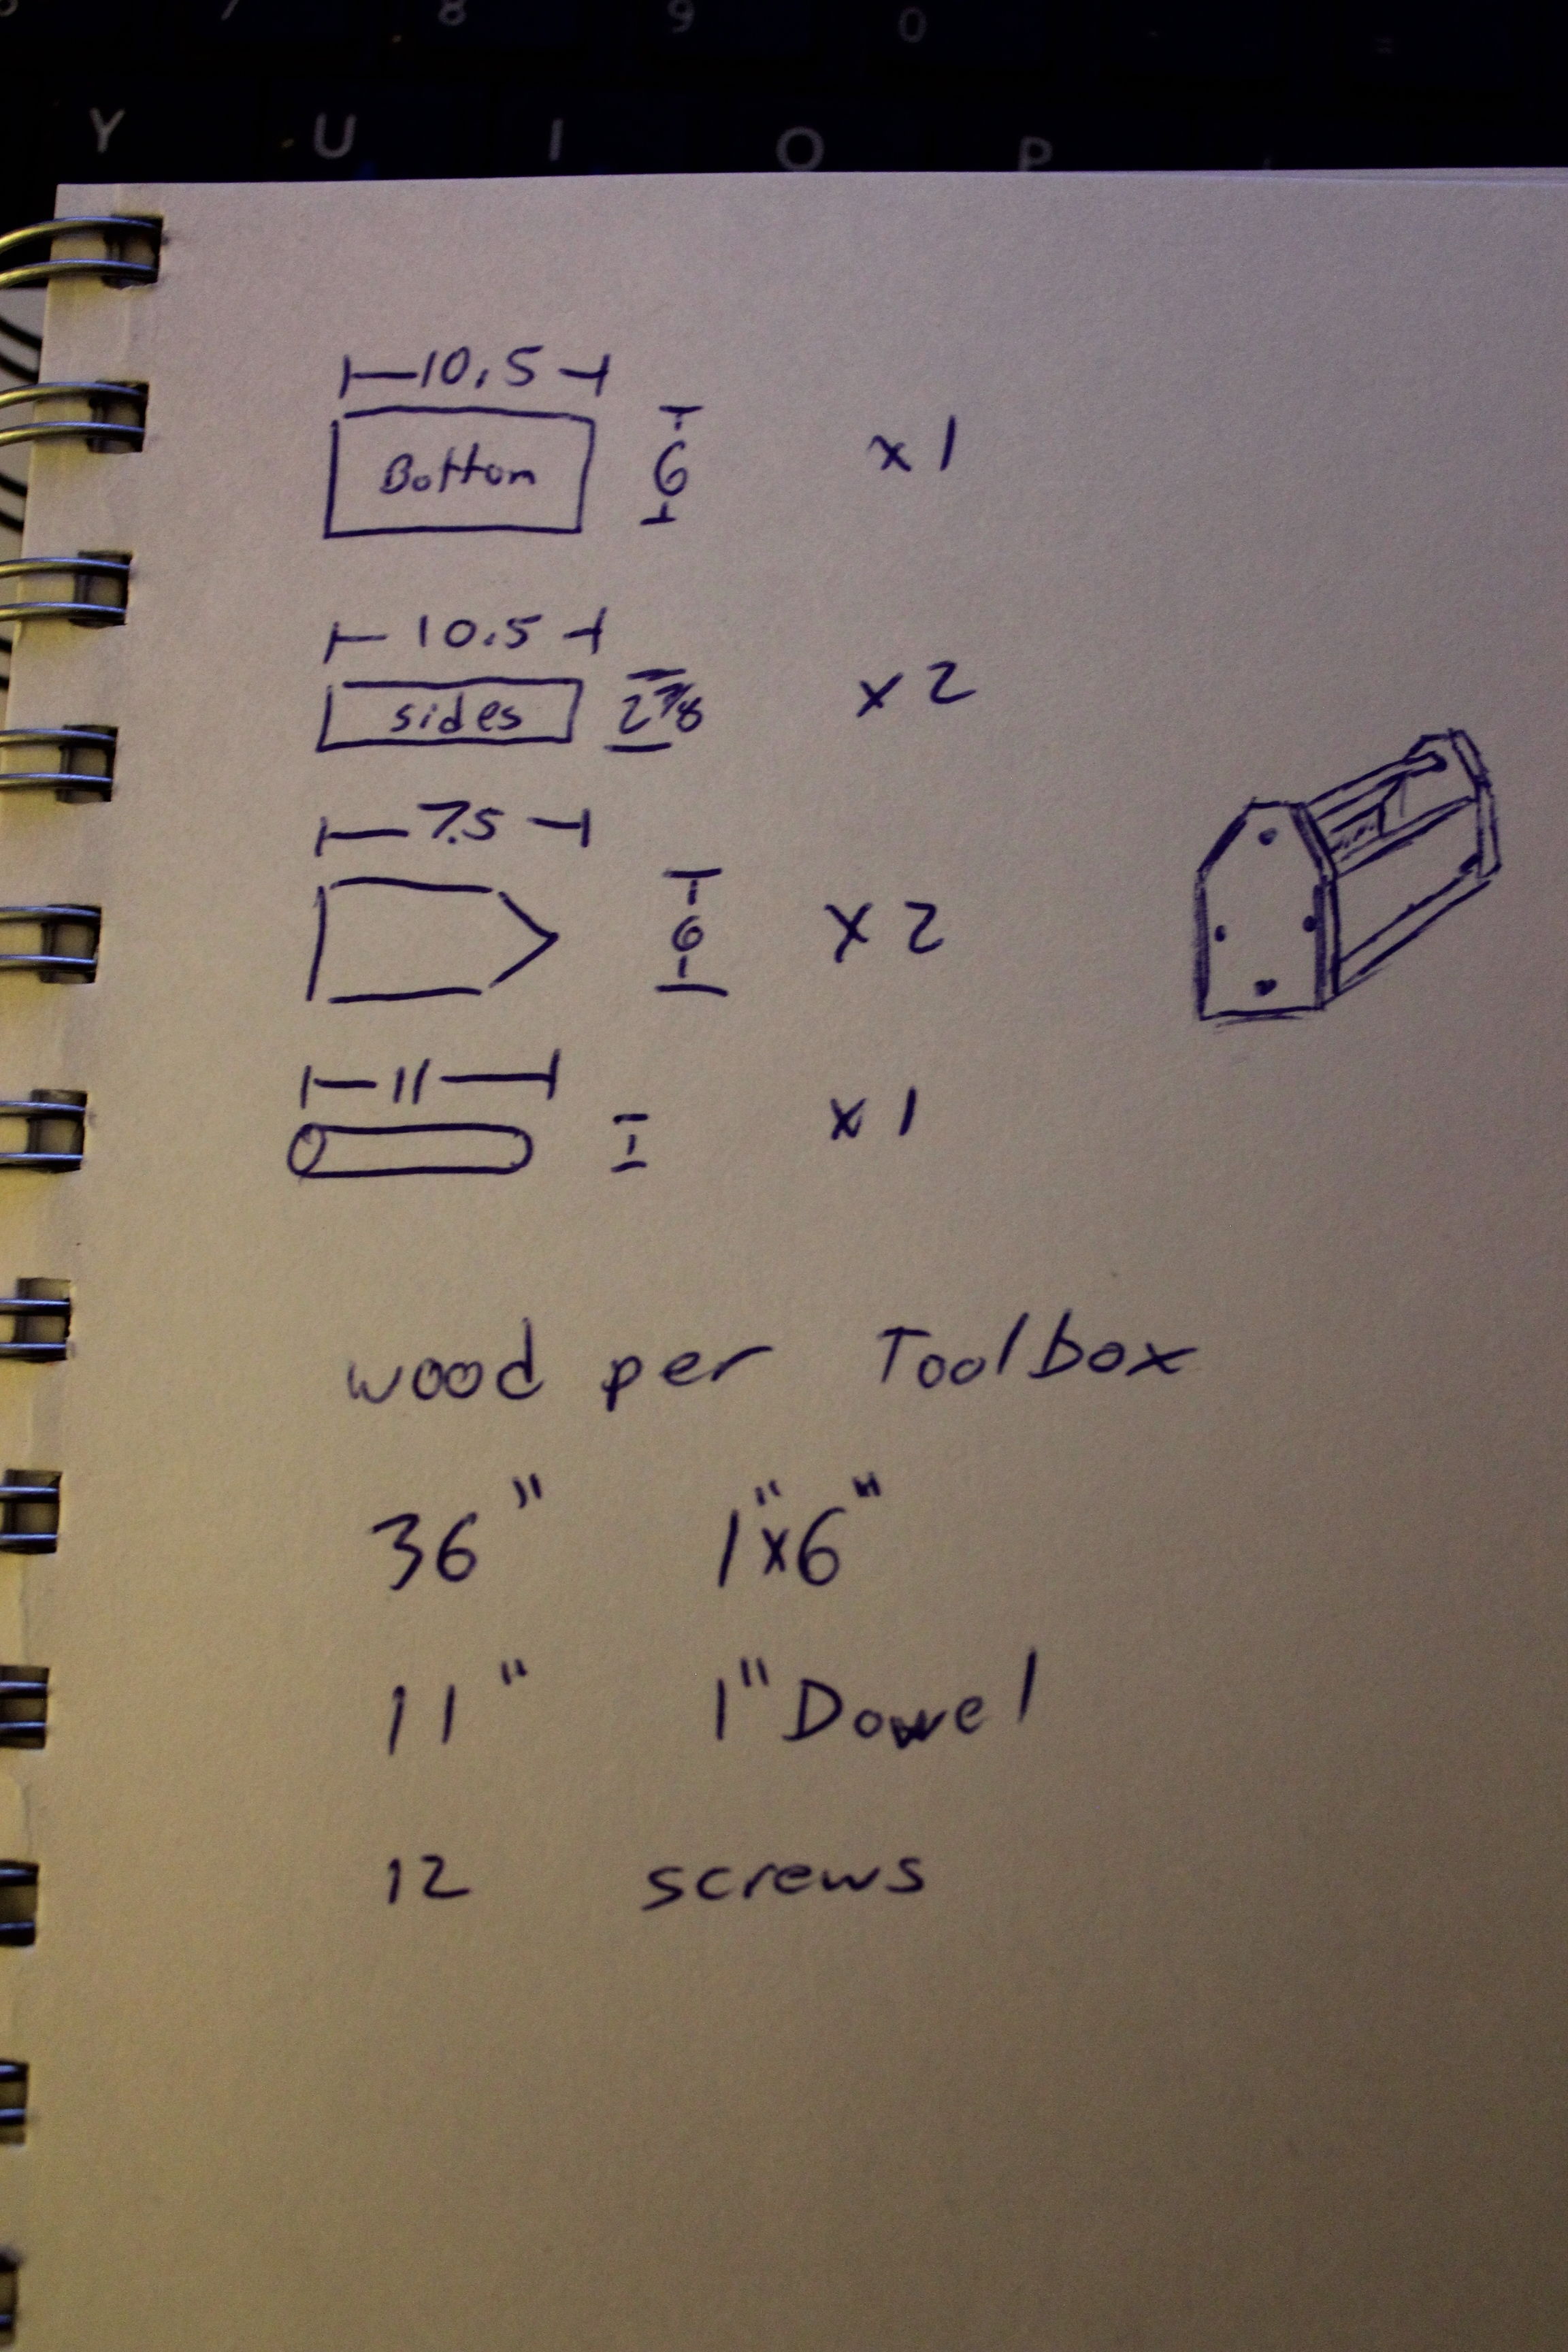 7 8 9 0
Y U I O P
10.5
Bottom 6 x1
10.5
sides 2 7/8 x2
7.5
6 x2
11
1 x1
wood per Toolbox
36" 1"x6"
11" 1" Dowel
12 screws